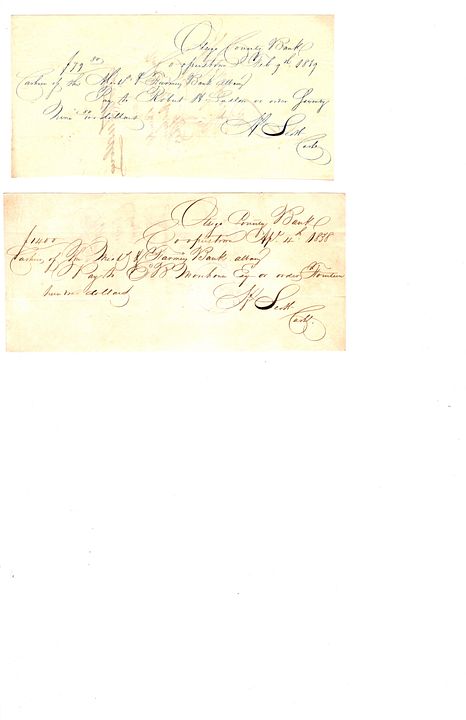 Otsego County Bank
$79 50/100 Cooperstown Feb 9th 1839
Cashier of the Mechs & Farmers Bank Albany
Pay to Robert H or order Seventy
Nine 50/100 dollars
H Scott
Cashr
Otsego County Bank
$1400 Cooperstown Apl 4th 1838
Cashier of the Mechs & Farmers Bank Albany
Pay to Esq or order Fourteen
hundred dollars
H Scott
Cashr.